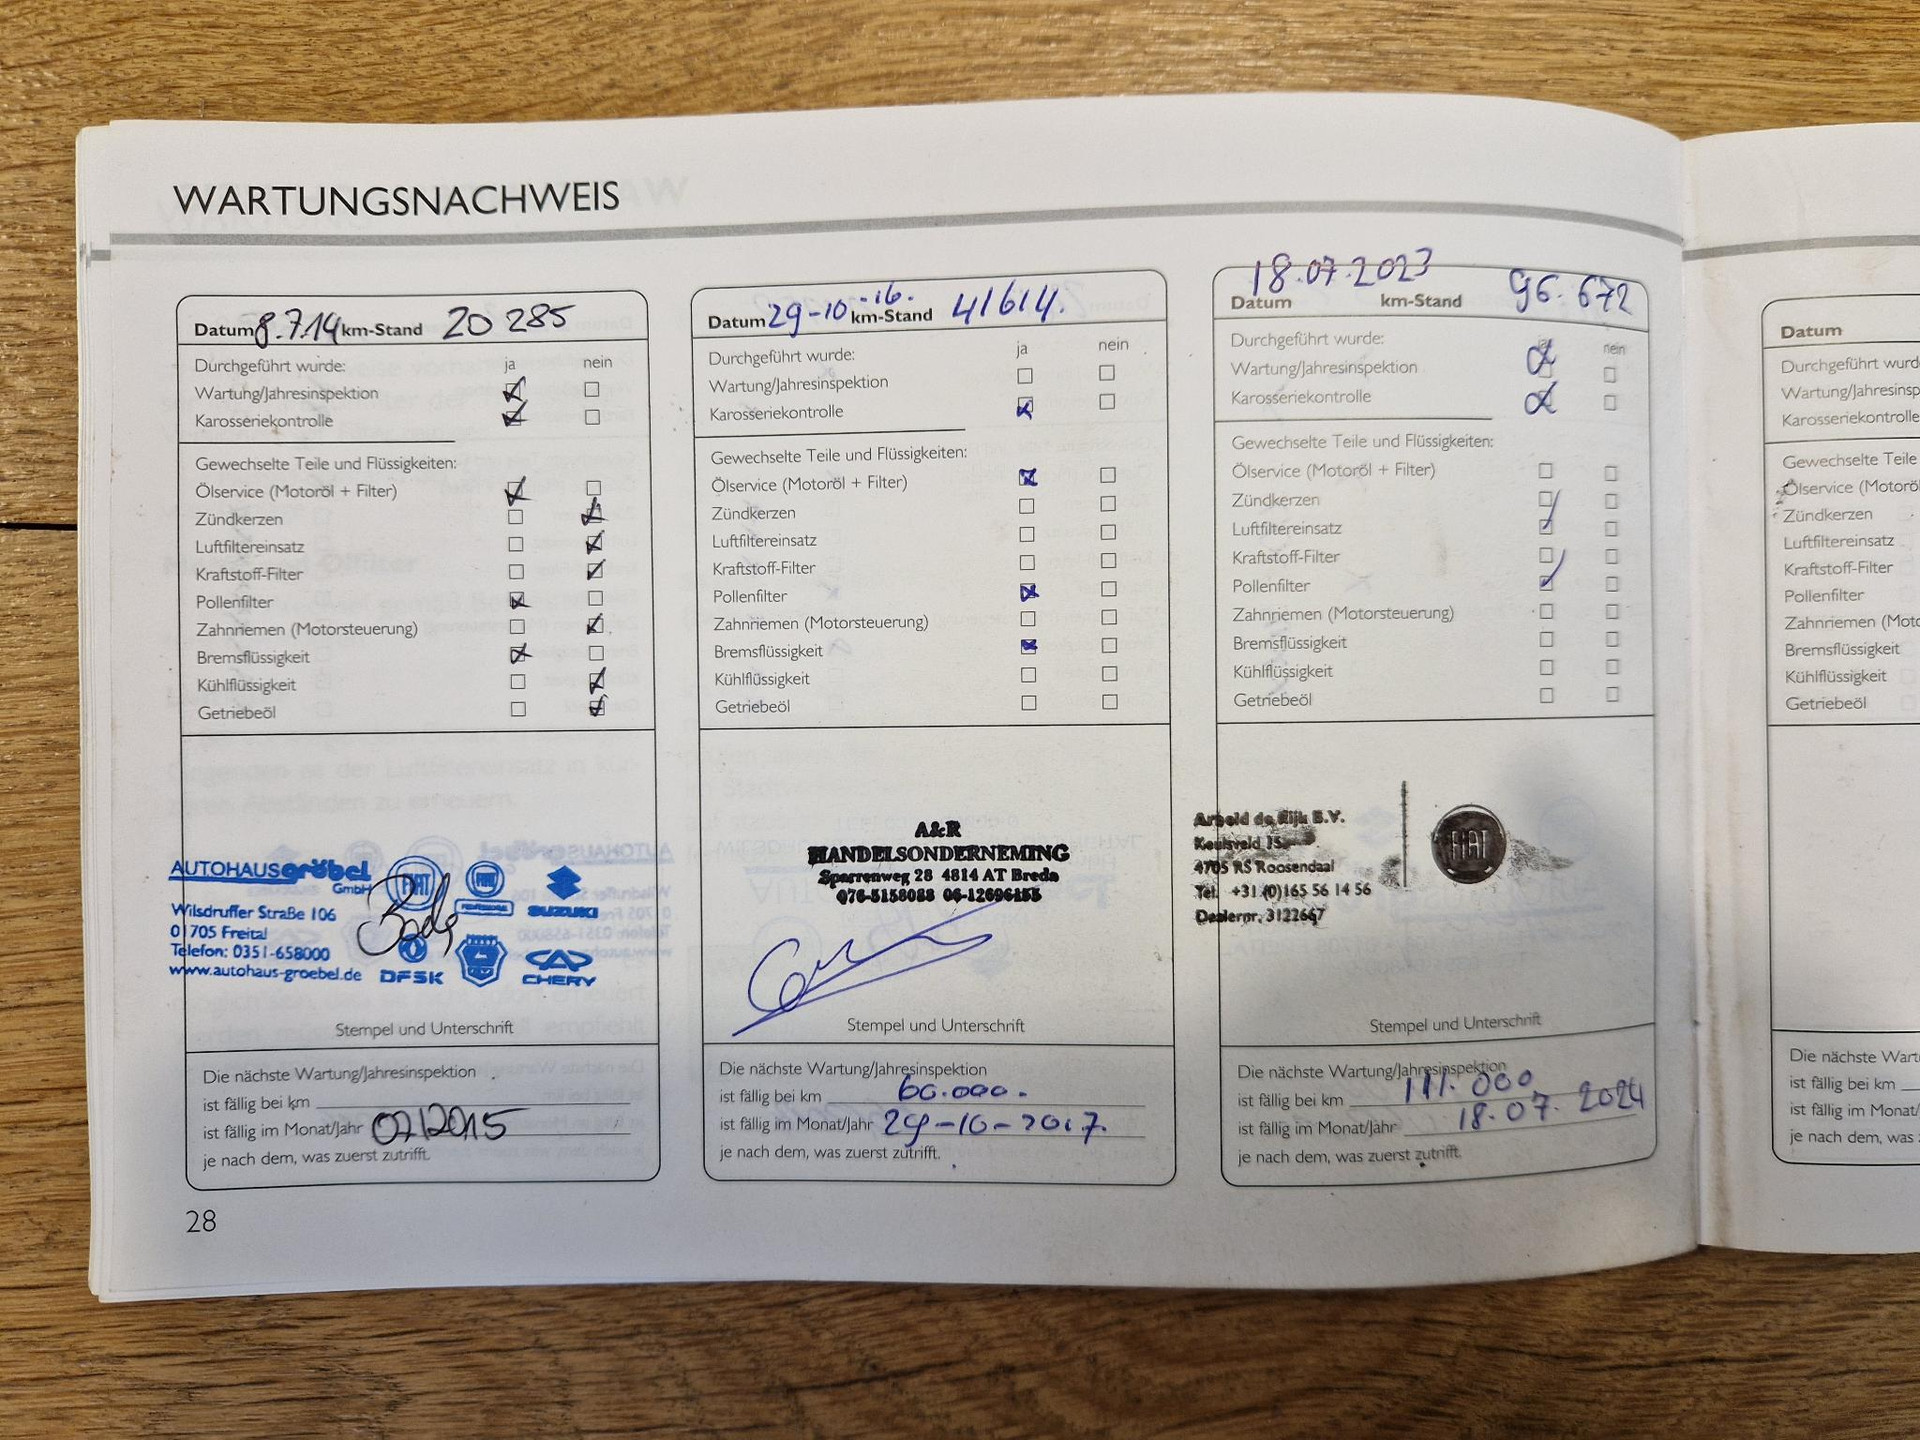 WARTUNGSNACHWEIS
Datum 8.7.14 km-Stand 20 285
Durchgeführt wurde: ja nein
Wartung/Jahresinspektion
Karosseriekontrolle
Gewechselte Teile und Flüssigkeiten:
Ölservice (Motoröl + Filter)
Zündkerzen
Luftfiltereinsatz
Kraftstoff-Filter
Pollenfilter
Zahnriemen (Motorsteuerung)
Bremsflüssigkeit
Kühlflüssigkeit
Getriebeöl
AUTOHAUS gröbel
GmbH
Wilsdruffer Straße 106
01705 Freital
Telefon: 0351-658000
www.autohaus-groebel.de
FIAT
FIAT
PROFESSIONAL
SUZUKI
DFSK
CHERY
Stempel und Unterschrift
Die nächste Wartung/Jahresinspektion
ist fällig bei km
ist fällig im Monat/Jahr 07/2015
je nach dem, was zuerst zutrifft.
28
Datum 29-10-16. km-Stand 41614.
Durchgeführt wurde: ja nein
Wartung/Jahresinspektion
Karosseriekontrolle
Gewechselte Teile und Flüssigkeiten:
Ölservice (Motoröl + Filter)
Zündkerzen
Luftfiltereinsatz
Kraftstoff-Filter
Pollenfilter
Zahnriemen (Motorsteuerung)
Bremsflüssigkeit
Kühlflüssigkeit
Getriebeöl
A&R
HANDELSONDERNEMING
Sparrenweg 28 4814 AT Breda
076-5158088 06-12696155
Stempel und Unterschrift
Die nächste Wartung/Jahresinspektion
ist fällig bei km 60.000.
ist fällig im Monat/Jahr 29-10-2017.
je nach dem, was zuerst zutrifft.
18.07.2023 96.672
Datum km-Stand
Durchgeführt wurde: ja nein
Wartung/Jahresinspektion
Karosseriekontrolle
Gewechselte Teile und Flüssigkeiten:
Ölservice (Motoröl + Filter)
Zündkerzen
Luftfiltereinsatz
Kraftstoff-Filter
Pollenfilter
Zahnriemen (Motorsteuerung)
Bremsflüssigkeit
Kühlflüssigkeit
Getriebeöl
Arnold de Rijk B.V.
Keulsveld 15
4705 RS Roosendaal
Tel. +31 (0)165 56 14 56
Dealernr. 3122667
FIAT
Stempel und Unterschrift
Die nächste Wartung/Jahresinspektion
ist fällig bei km 111.000
ist fällig im Monat/Jahr 18.07.2024
je nach dem, was zuerst zutrifft.
Datum
Durchgeführt wurd
Wartung/Jahresinsp
Karosseriekontrolle
Gewechselte Teile
Ölservice (Motoröl
Zündkerzen
Luftfiltereinsatz
Kraftstoff-Filter
Pollenfilter
Zahnriemen (Moto
Bremsflüssigkeit
Kühlflüssigkeit
Getriebeöl
Die nächste Wart
ist fällig bei km
ist fällig im Monat/
je nach dem, was